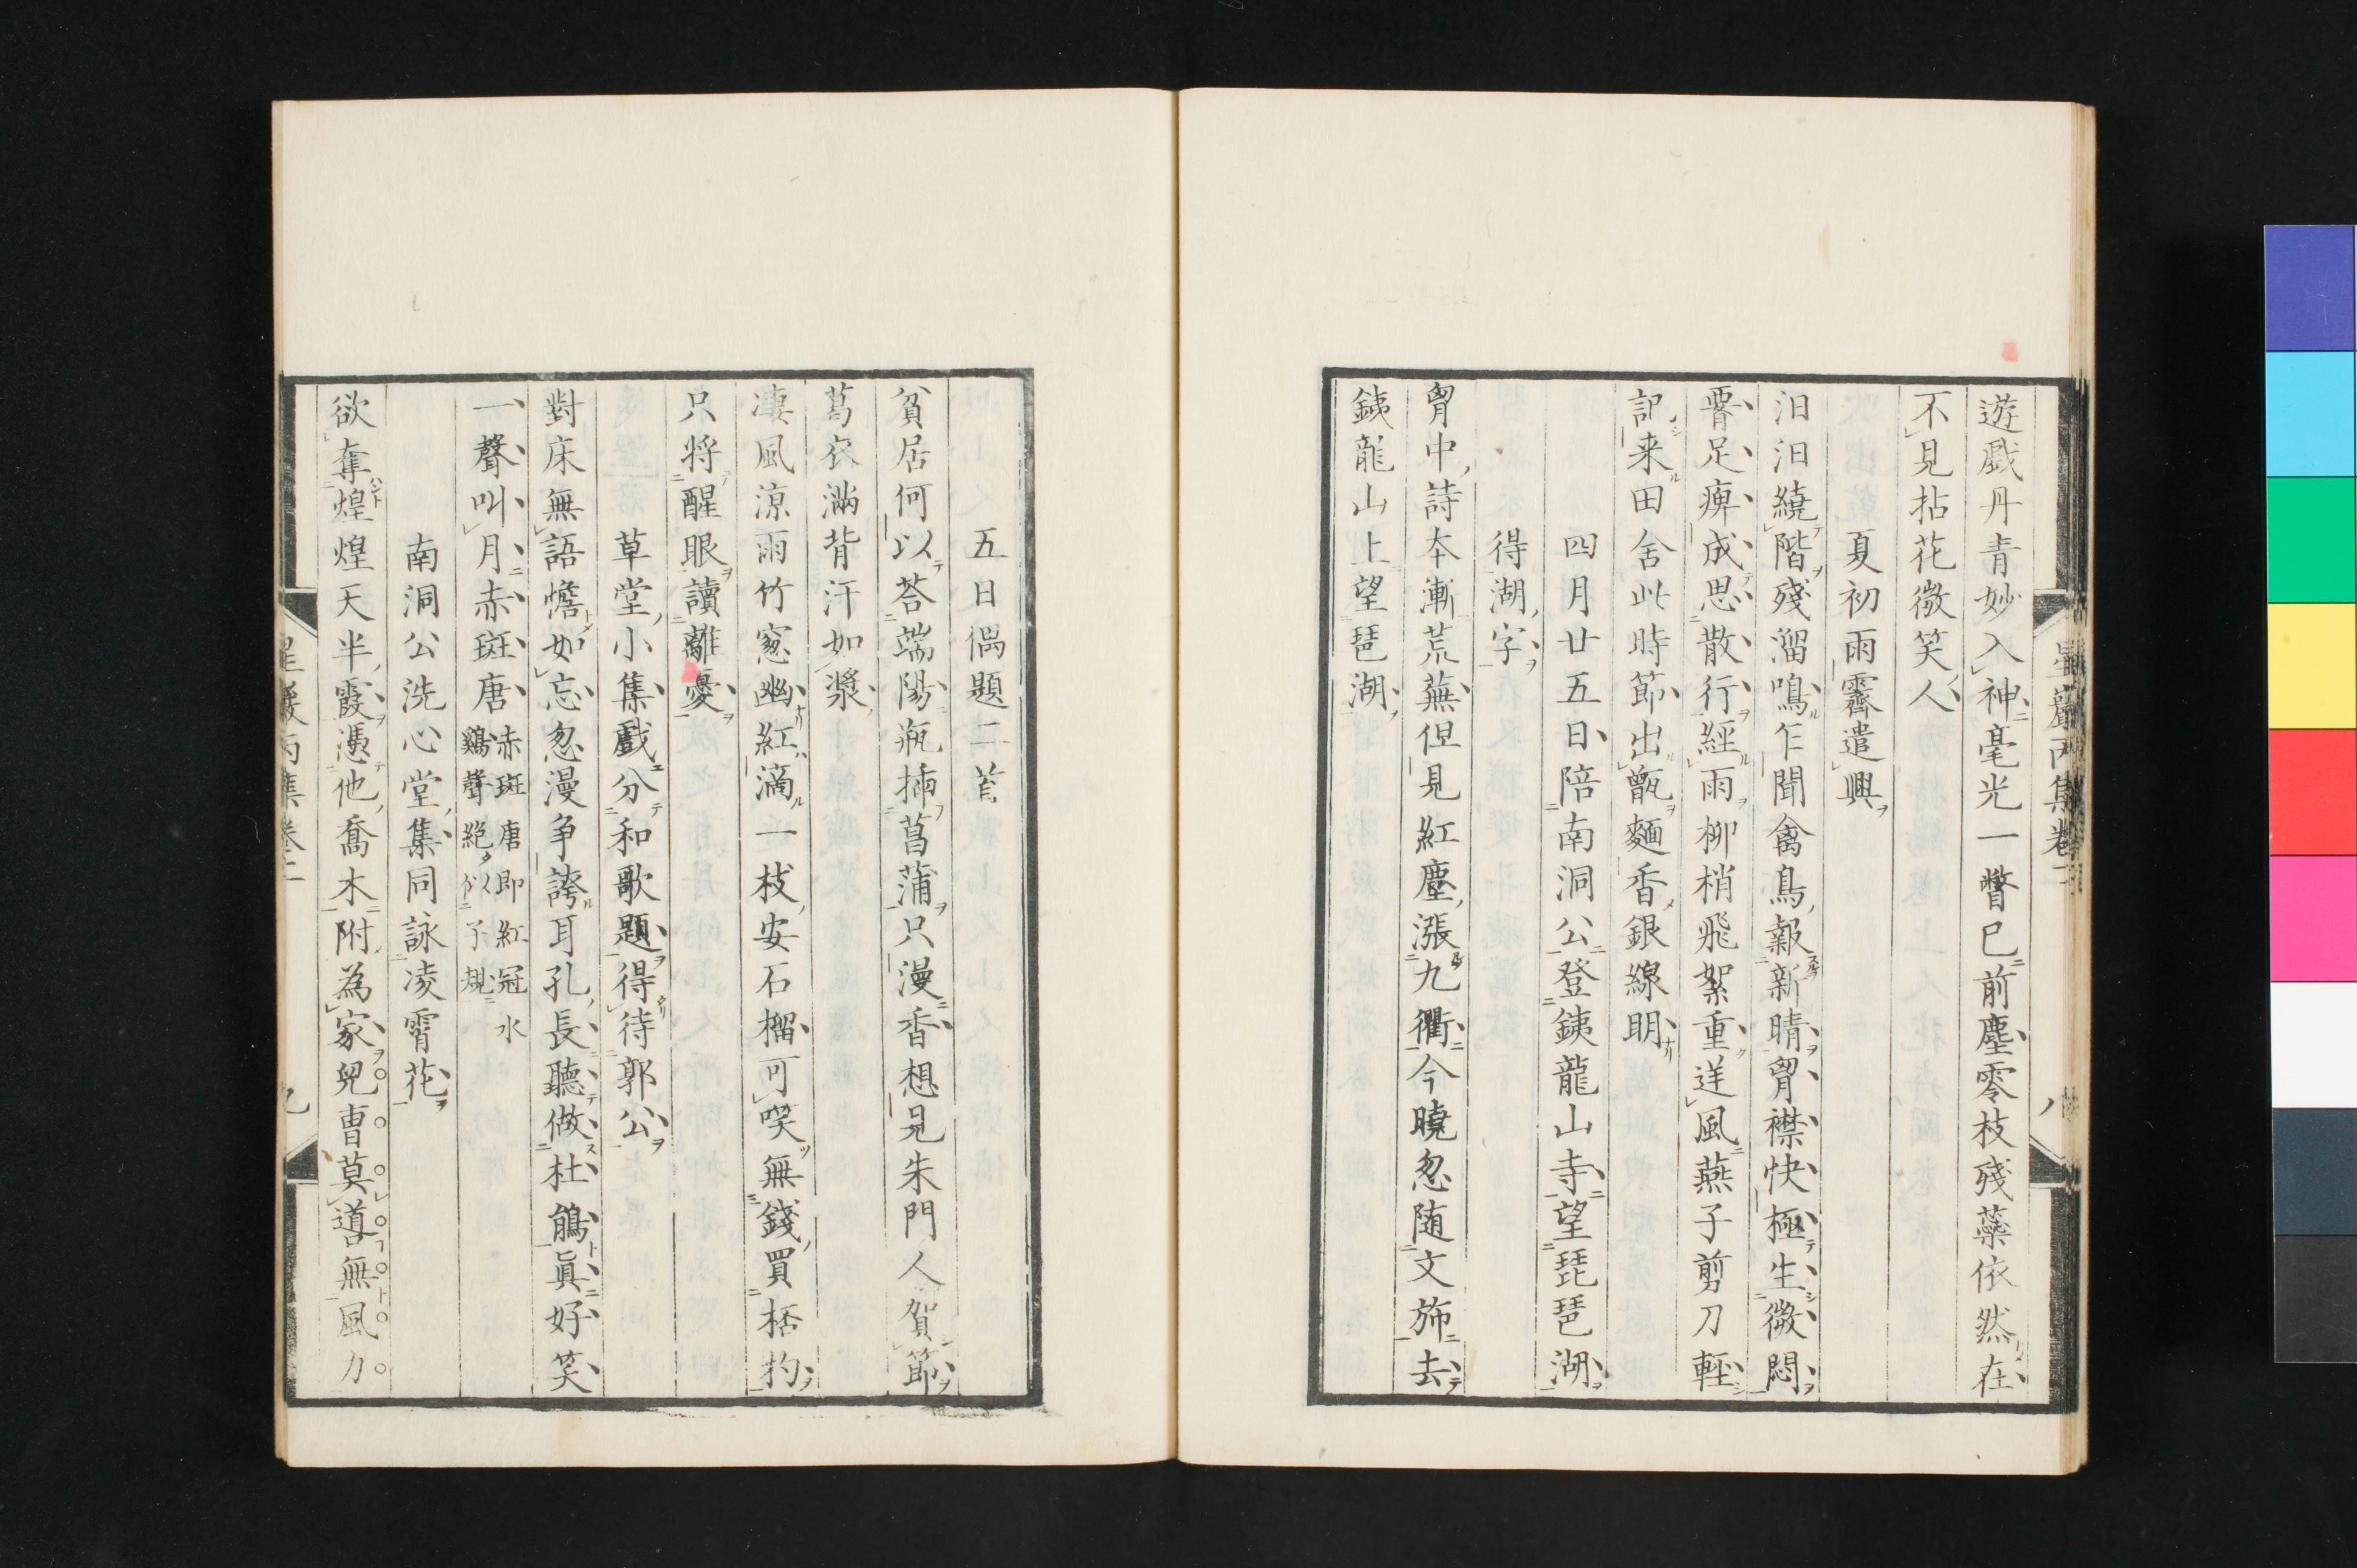 遊戯丹青妙入神毫光一瞥已前塵零枝殘蘂依然在
不見拈花微笑人
夏初雨霽遣興
汩汩繞階殘溜鳴乍聞禽鳥報新晴胷襟快極生微悶
霤足痺成思散行經雨柳梢飛絮重逆風燕子剪刀輕
記来田舎此時節出甑麵香銀線明
四月廿五日陪南洞公登銕龍山寺望琵琶湖
得湖字
胷中詩本漸荒蕪但見紅塵漲九衢今曉忽随文斾去
銕龍山上望琶湖
五日偶題二首
貧居何以荅端陽瓶插菖蒲只漫香想見朱門人賀節
葛衣滿背汗如漿
凄風涼雨竹窻幽紅滴一枝安石榴可咲無錢買桮杓
只将醒眼讀離憂
草堂小集戲分和歌題得待郭公
對床無語憺如忘忽漫争誇耳孔長聽做杜鵑眞好笑
一聲叫月赤斑唐赤斑唐即紅冠水
鷄聲絶似子規
南洞公洗心堂集同詠凌霄花
欲奪煌煌天半霞憑他喬木附為家兒曹莫道無風力